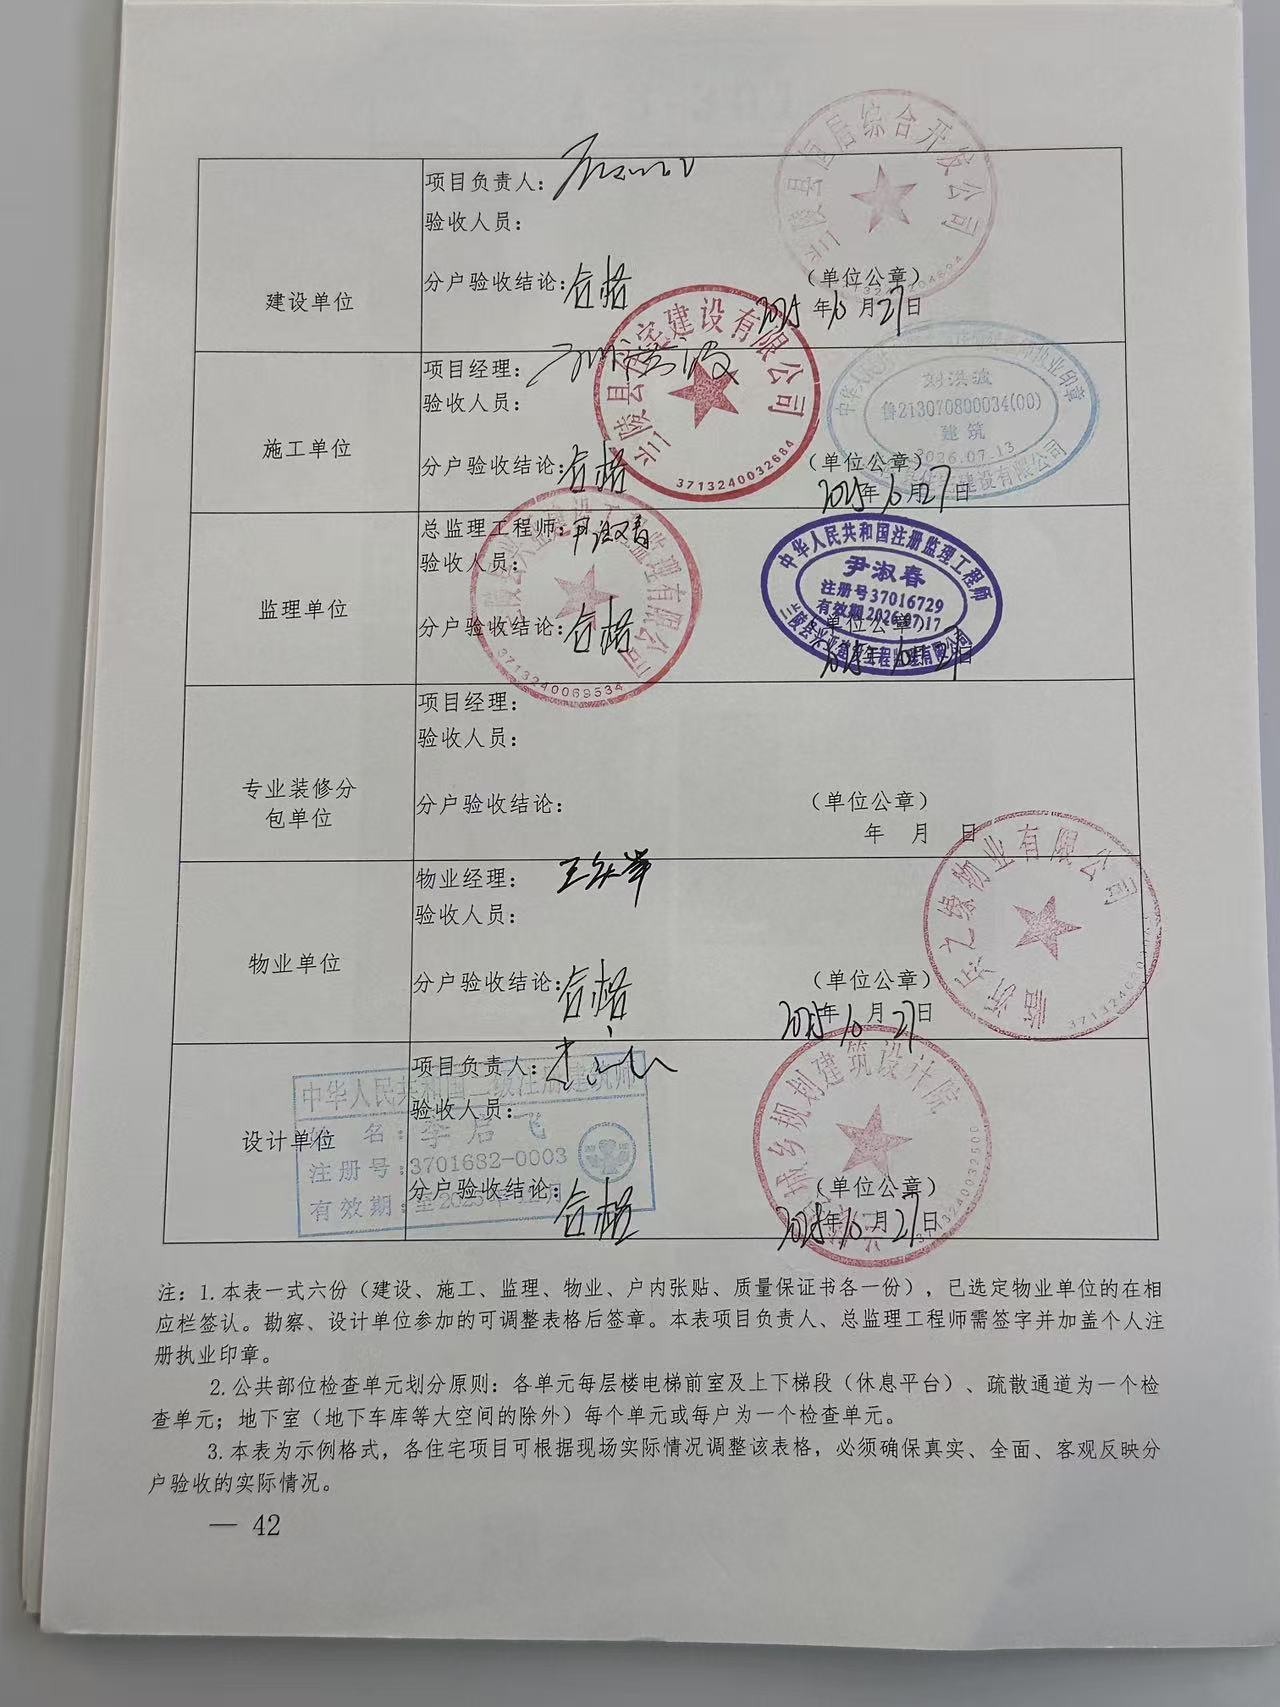 建设单位
项目负责人:
验收人员:
分户验收结论: 合格
(单位公章)
2025年10月27日
兰陵县国居综合开发公司
施工单位
项目经理: 刘洪波
验收人员:
分户验收结论: 合格
(单位公章)
2025年10月27日
兰陵县住宅建设有限公司
3713240032684
刘洪波
鲁213070800034(00)
建筑
2026.07.13
监理单位
总监理工程师: 尹淑春
验收人员:
分户验收结论: 合格
单位公章)
2025年10月27日
兰陵县兴亚建设工程监理有限公司
3713240069534
中华人民共和国注册监理工程师
尹淑春
注册号37016729
有效期2026.07.17
兰陵县兴亚建设工程监理有限公司
专业装修分
包单位
项目经理:
验收人员:
分户验收结论:
(单位公章)
年 月 日
物业单位
物业经理:
验收人员:
分户验收结论: 合格
(单位公章)
2025年10月27日
临沂兵之缘物业有限公司
设计单位
项目负责人:
验收人员:
分户验收结论: 合格
(单位公章)
2025年10月27日
城乡规划建筑设计院
3713240032600
中华人民共和国二级注册建筑师
姓 名: 李启飞
注册号: 3701682-0003
有效期: 至2025年12月
注: 1.本表一式六份(建设、施工、监理、物业、户内张贴、质量保证书各一份),已选定物业单位的在相
应栏签认。勘察、设计单位参加的可调整表格后签章。本表项目负责人、总监理工程师需签字并加盖个人注
册执业印章。
2.公共部位检查单元划分原则:各单元每层楼电梯前室及上下梯段(休息平台)、疏散通道为一个检
查单元;地下室(地下车库等大空间的除外)每个单元或每户为一个检查单元。
3.本表为示例格式,各住宅项目可根据现场实际情况调整该表格,必须确保真实、全面、客观反映分
户验收的实际情况。
— 42